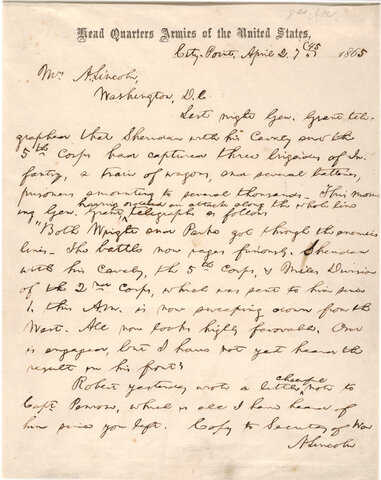 8 30 A.M.
Head Quarters Armies of the United States,
City-Point, April 2. 7 45 1865
Mrs A. Lincoln,
Washington, D.C.
Last night Gen. Grant tel-
egraphed that Sheridan with his Cavalry and the
5th Corps had captured three brigades of In-
fantry, a train of wagons, and several batteries,
prisoners amounting to several thousands. This morn-
having ordered an attack along the whole line
ing Gen. Grant, telegraphs as follows
"Both Wright and Parke got through the enemies
lines. The battle now rages furiously. Sheridan
with his Cavalry, the 5th Corps, & Miles Division
of the 2nd Corps, which was sent to him since
1. this A.M. is now sweeping down from the
West. All now looks highly favorable. Ord
is engaged, but I have not yet heard the
result on his front"
Robert yesterday wrote a little cheerful note to
Capt. Penrose, which is all I have heard of
him since you left. Copy to Secretary of War
A. Lincoln